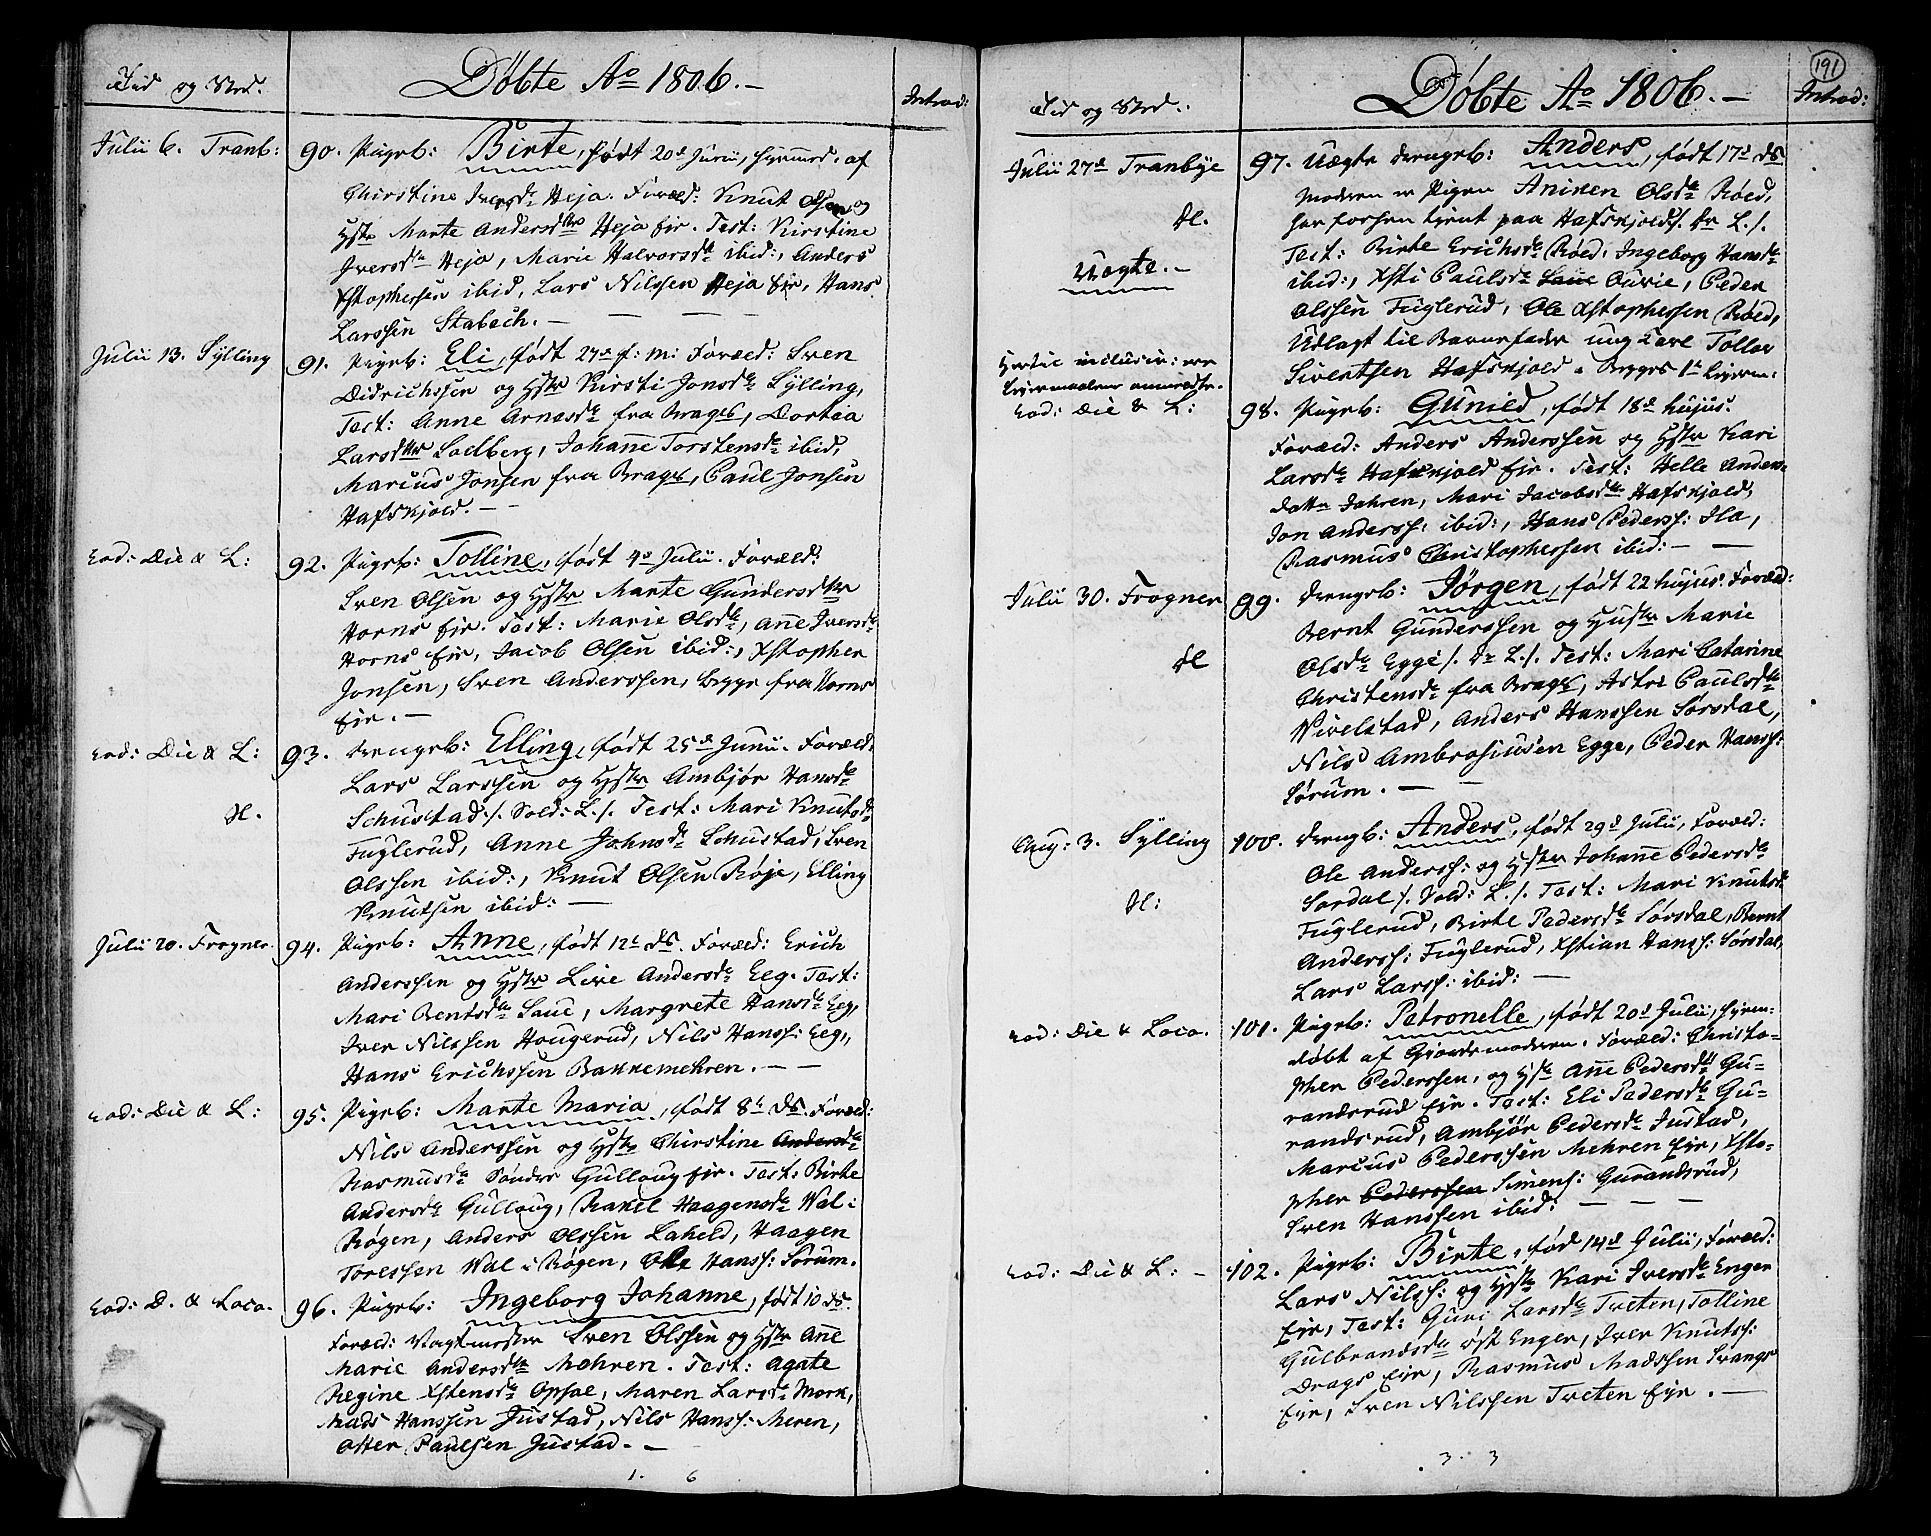 Tid og Sted.
Døbte Ao 1806.-
Introd:
Julii 6. Tranb:
90. Pigeb: Birte, født 20d Junii, hjemmed. af
Chirstine Iversdr Heja. Foræld: Knut Olsen og
Hstr Marte Andersdtr Heja Eje. Test: Kirstine
Iversdr Heja, Marie Halvorsdr ibid:, Anders
Xstophersen ibid, Lars Nilssen Heja Eje, Hans
Larssen Stabech. -
Julii 13. Sylling
91. Pigeb: Eli, født 27d f: m: Foræld: Sven
Didrichssen og Hstr Kirsti Jonsdr Sylling,
Test: Anne Arnesdr fra Brages, Dortea
Larsdtr Solberg, Johanne Torstensdr ibid,
Marcus Jonsen fra Brages, Paul Jonsen
Hafskjold. -
eod: Die & L:
92. Pigeb: Tolline, født 4d Julii. Foræld:
Sven Olsen og Hstr Marte Gundersdtr
Horns Eje. Test: Marie Olsdr, Anne Iversdr
Horns Eje, Jacob Olsen ibid:, Xstopher
Jonsen, Sven Anderssen, begge fra Horns
Eje. -
eod: Die & L:
93. Drengeb: Elling, født 25d Junii. Foræld:
Lars Larssen og Hstr Ambjør Hansdr
H.
Schustad /. Sold: L /. Test: Mari Knutsdr
Fuglerud, Anne Johnsdr Schustad, Sven
Olssen ibid:, Knut Olsen Røje, Elling
Knutsen ibid: -
Julii 20. Frogner.
94. Pigeb: Anne, født 12t ds. Foræld: Erich
Anderssen og Hstr Live Andersdr Eeg. Test:
Mari Bentsdr Saue, Margrete Hansdr Eeg,
Iver Nilssen Hougerud, Nils Hanss: Eeg,
Hans Erichssen Bakkemehren. -
eod: Die & L:
95. Pigeb: Marte Maria, født 8t ds. Foræld:
Nils Anderssen og Hstr Chirstine Andersdr
Rasmusdr Sønder Gulloug Eje. Test: Birte
Andersdr Gulloug, Rakel Haagensdr Wal i
Røgen, Anders Olssen Laheld, Haagen
Toressen Wal i Røgen, Ole Hanss: Sørum.
eod: D. & Loco.
96. Pigeb: Ingeborg Johanne, født 10 ds.
Foræld: Vagtmester Sven Olssen og Hstr Anne
Marie Andersdtr Mehren. Test: Agate
Regine Xstensdr Opsae, Maren Larsdr Mørk,
Mads Hanssen Justad, Nils Hanss: Meren,
Otter Paulsen Justad. -
1. 6
191
Tid og Sted.
Døbte Ao 1806.-
Introd:
Julii 27d Tranbye
97. Uægte drengeb: Anders, født 17d ds
Moderen er Pigen Aniken Olsdr Røed,
H.
har forhen tjent paa Hafskjold /. Dr L /.
Test: Birte Erichsdr Røed, Ingeborg Hansdr
Uægte. -
ibid:, Xsti Paulsdr Saue Ourie, Peder
Olssen Fuglerud, Ole Xstophersen Røed,
Udlagt til Barnefader ung Karl Tollov
Hertil inclusiv: ere
Sivertsen Hafskjold. Begges 1t Lejerm:
Lejermaalene anmeldte.
eod: Die & L:
98. Pigeb: Gunild, født 18d hujus.
Foræld: Anders Anderssen og Hstr Kari
Larsdr Hafskjold Eje. Test: Helle Anders
datter Jahren, Mari Jacobsdtr Hafskjold,
Jon Anderss: ibid:, Hans Pederss: Ila,
Rasmus Christophersen ibid: -
Julii 30. Frogner
99. Drengeb: Jørgen, født 22 hujus. Foræld:
Bernt Gunderssen og Hustr Marie
H
Olsdr Egge /. Dr L /. Test: Mari Catarine
Christensdr fra Brages, Astri Paulsdtr
Vivelstad, Anders Hanssen Sørsdal,
Nils Ambrosiussen Egge, Peder Hanss:
Sørum. -
Aug: 3. Sylling
100. Drengb: Anders, født 29d Julii, Foræld:
Ole Anderss: og Hstr Johanne Pedersdr
H:
Sørdal /. Sold: L /. Test: Mari Knutsdr
Fuglerud, Birte Pedersdr Sørsdal, Bernt
Anderss: Fuglerud, Xstian Hanss: Sørsdal,
Lars Larss: ibid: -
eod: Die & Loco.
101. Pigeb: Petronelle, født 20d Julii, hjem-
døbt af Giordemoderen. Foræld: Christo-
pher Pederssen, og Hstr Anne Pedersdtr Gu-
randsrud Eje. Test: Eli Pedersdr Gu-
randsrud, Ambjør Pedersdr Justad,
Marcus Pederssen Mehren Eje, Xsto-
pher Pederssen Simens: Gurandsrud,
Sven Hanssen ibid: -
eod: Die & L: -
102. Pigeb: Birte, fød 14d Julii, Foræld:
Lars Nilss: og Hstr Kari Iversdr Enger
Eje, Test: Guri Larsdr Treten, Tolline
Gulbrandsdr øst Enger, Iver Knutss:
Drags Eje, Rasmus Madssen Svangs
Eje, Sven Nilssen Treten Eje. -
3. 3